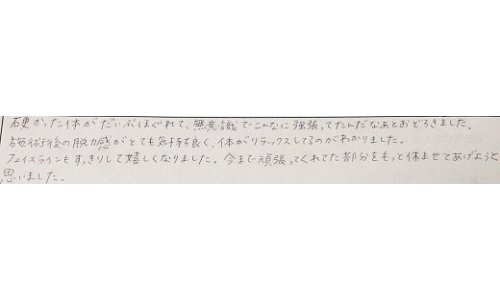 硬かった体がだいぶほぐれて、無意識でこんなに強張ってたんだなあとおどろきました。
施術後の脱力感がとても気持ち良く、体がリラックスしてるのがわかりました。
フェイスラインもすっきりして嬉しくなりました。今まで頑張ってくれてた部分をもっと休ませてあげようと
思いました。